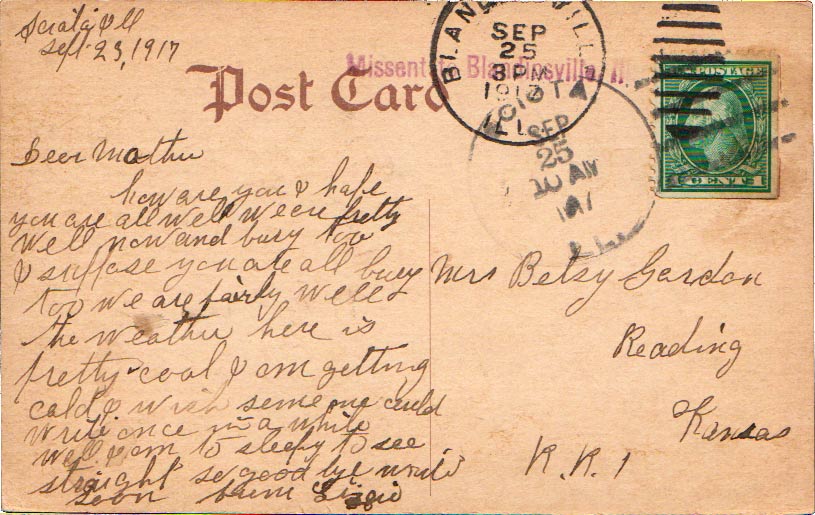 Sciota Ill
Sept. 23, 1917
Post Card
Missent to Blandinsville, Ill.
BLANDINSVILLE
SEP
25
8 PM
1917
ILL.
SCIOTA
SEP
25
10 AM
1917
ILL.
U.S. POSTAGE
1 CENT 1
Deer Mother
how are you I hope
you are all well we are pretty
well now and busy too
I suppose you are all busy
too we are fairly well
the weather here is
pretty cool I am getting
cold I wish some one could
write once in a while
well I am to sleepy to see
straight so good bye write
soon Lizzie
Mrs Betsy Gordon
Reading
Kansas
R.R. 1